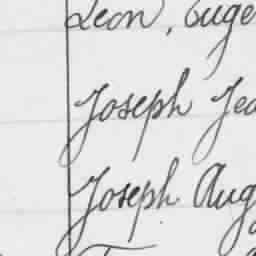 Léon, Euge
Joseph Jea
Joseph Aug